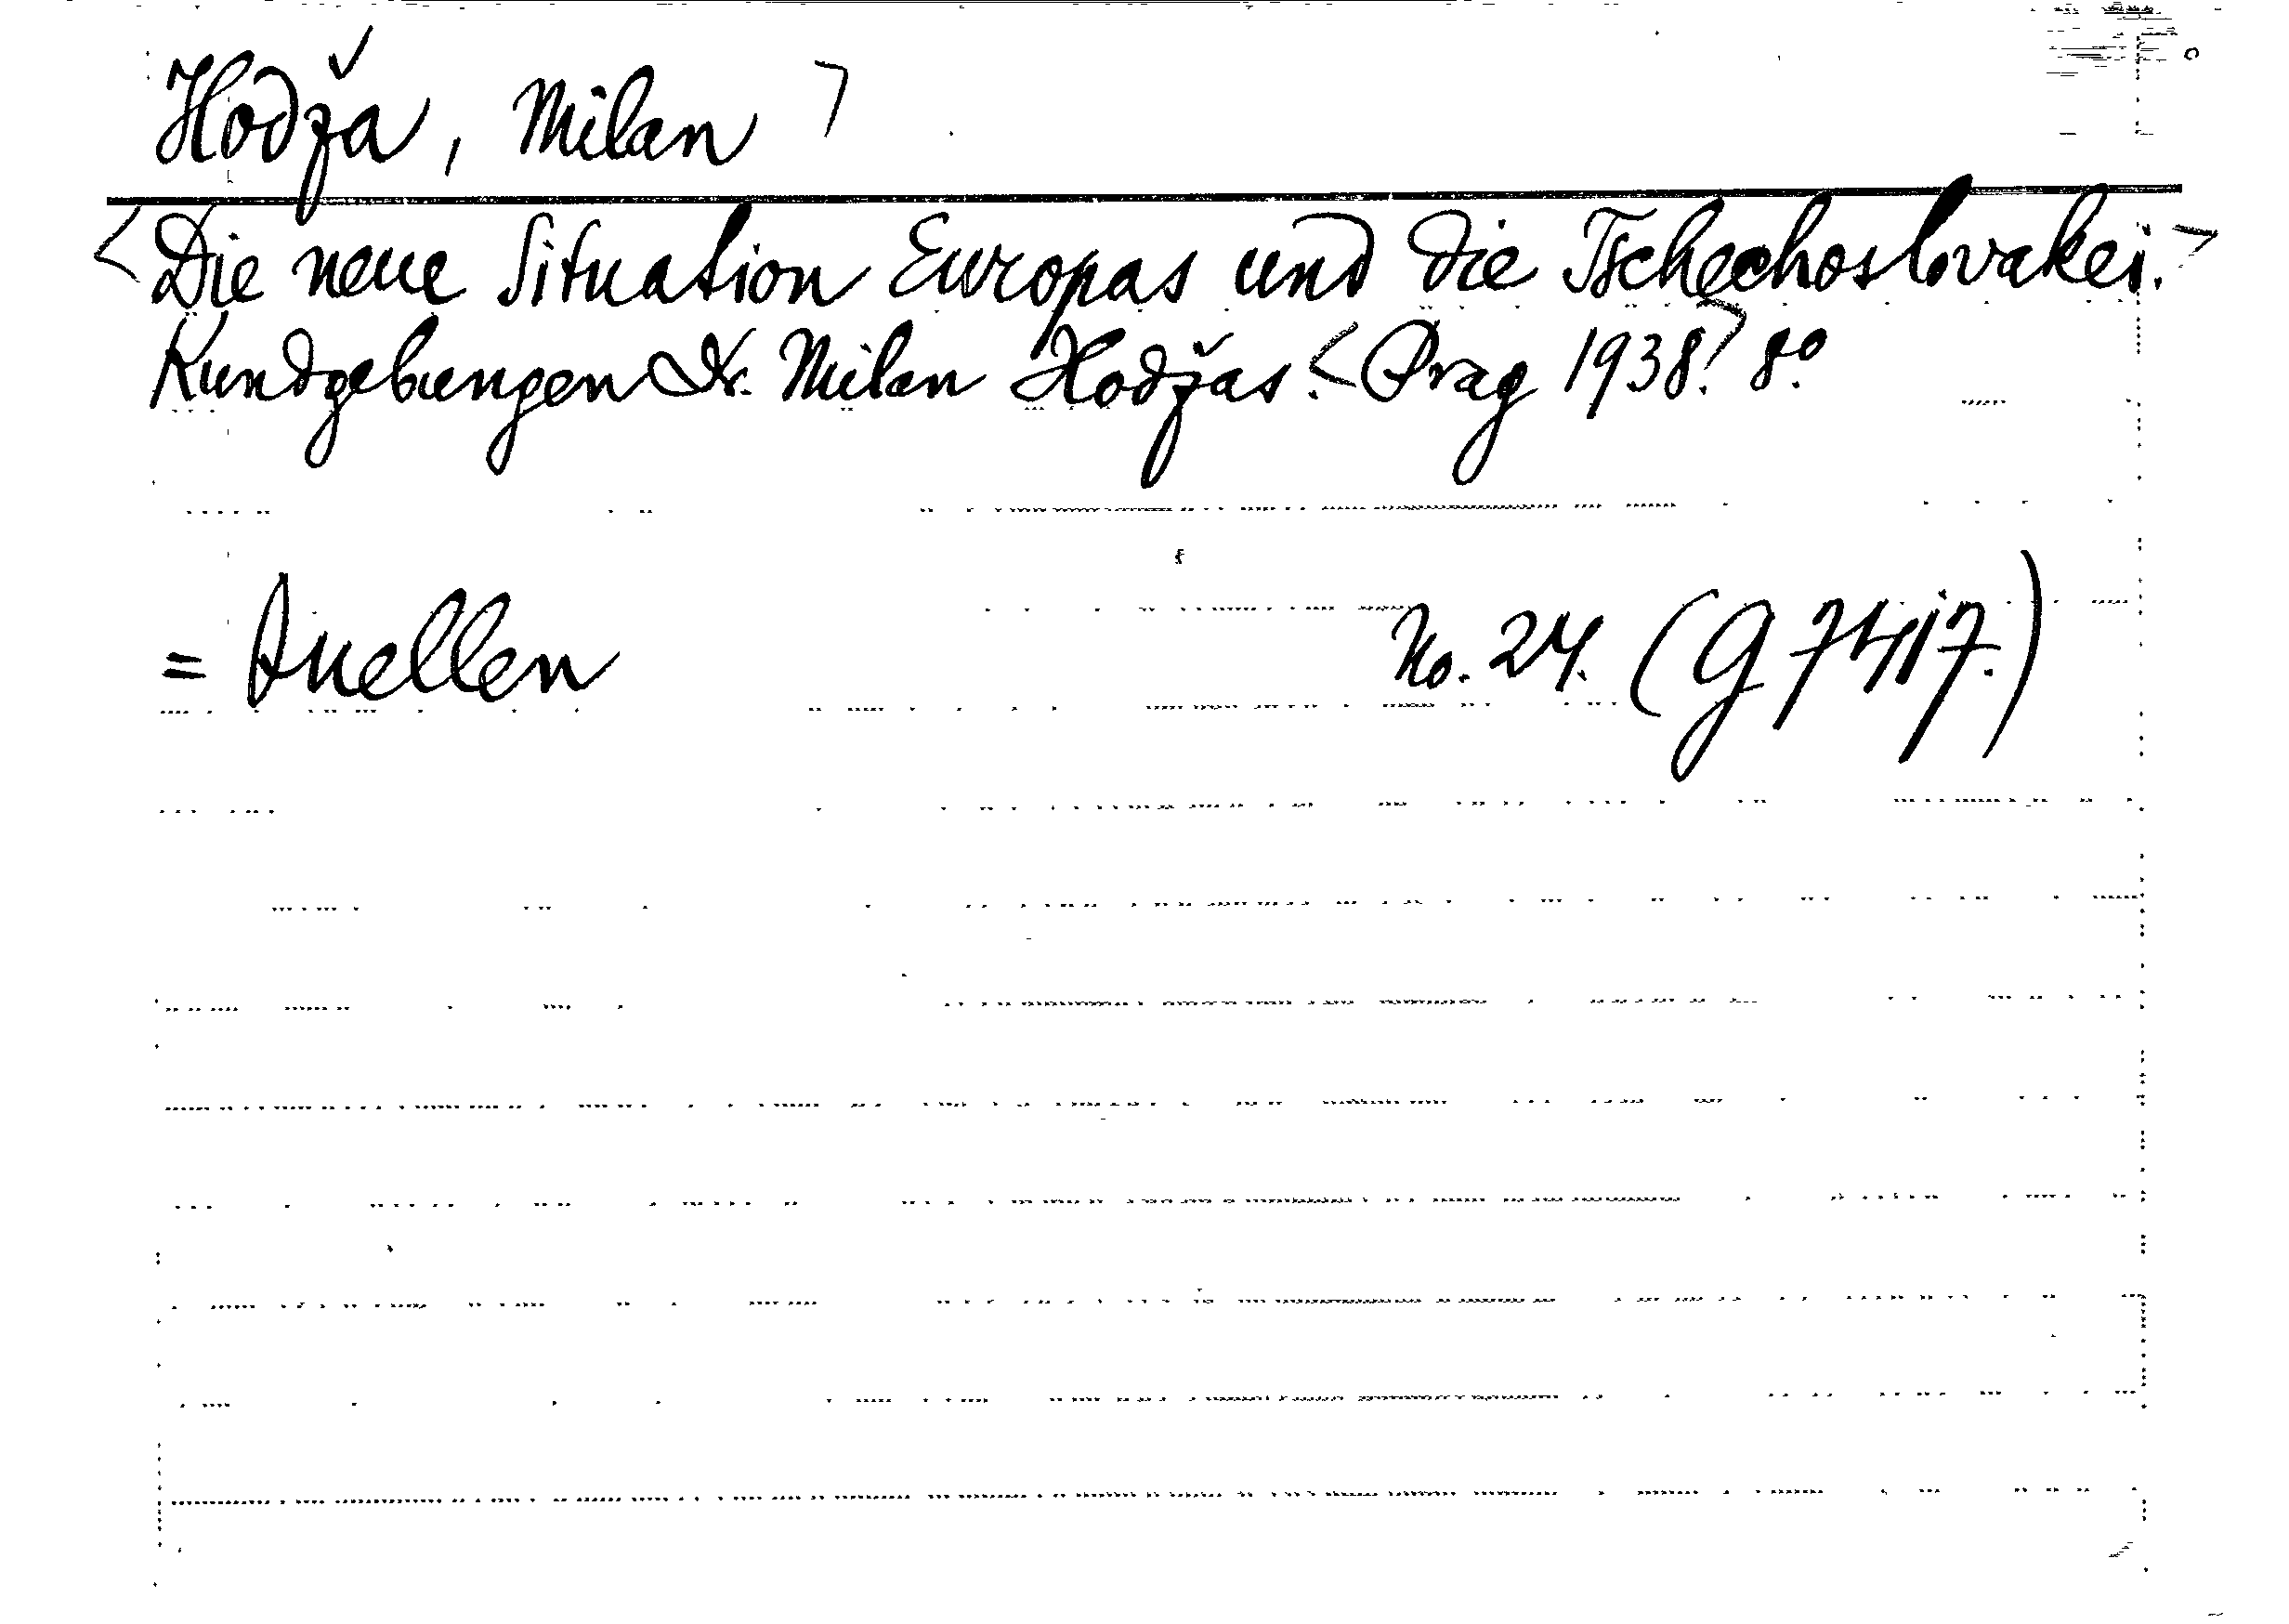 Hodža, Milan ⟩
<Die neue Situation Europas und die Tschechoslovakei.>
Kundgebungen Dr. Milan Hodžas. <Prag 1938.> 8°.
= Quellen No. 24. (G 7417.)